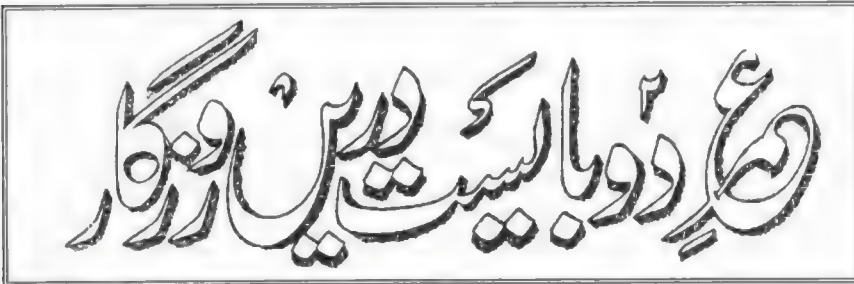 عمرِ دو بایست درین روزگار